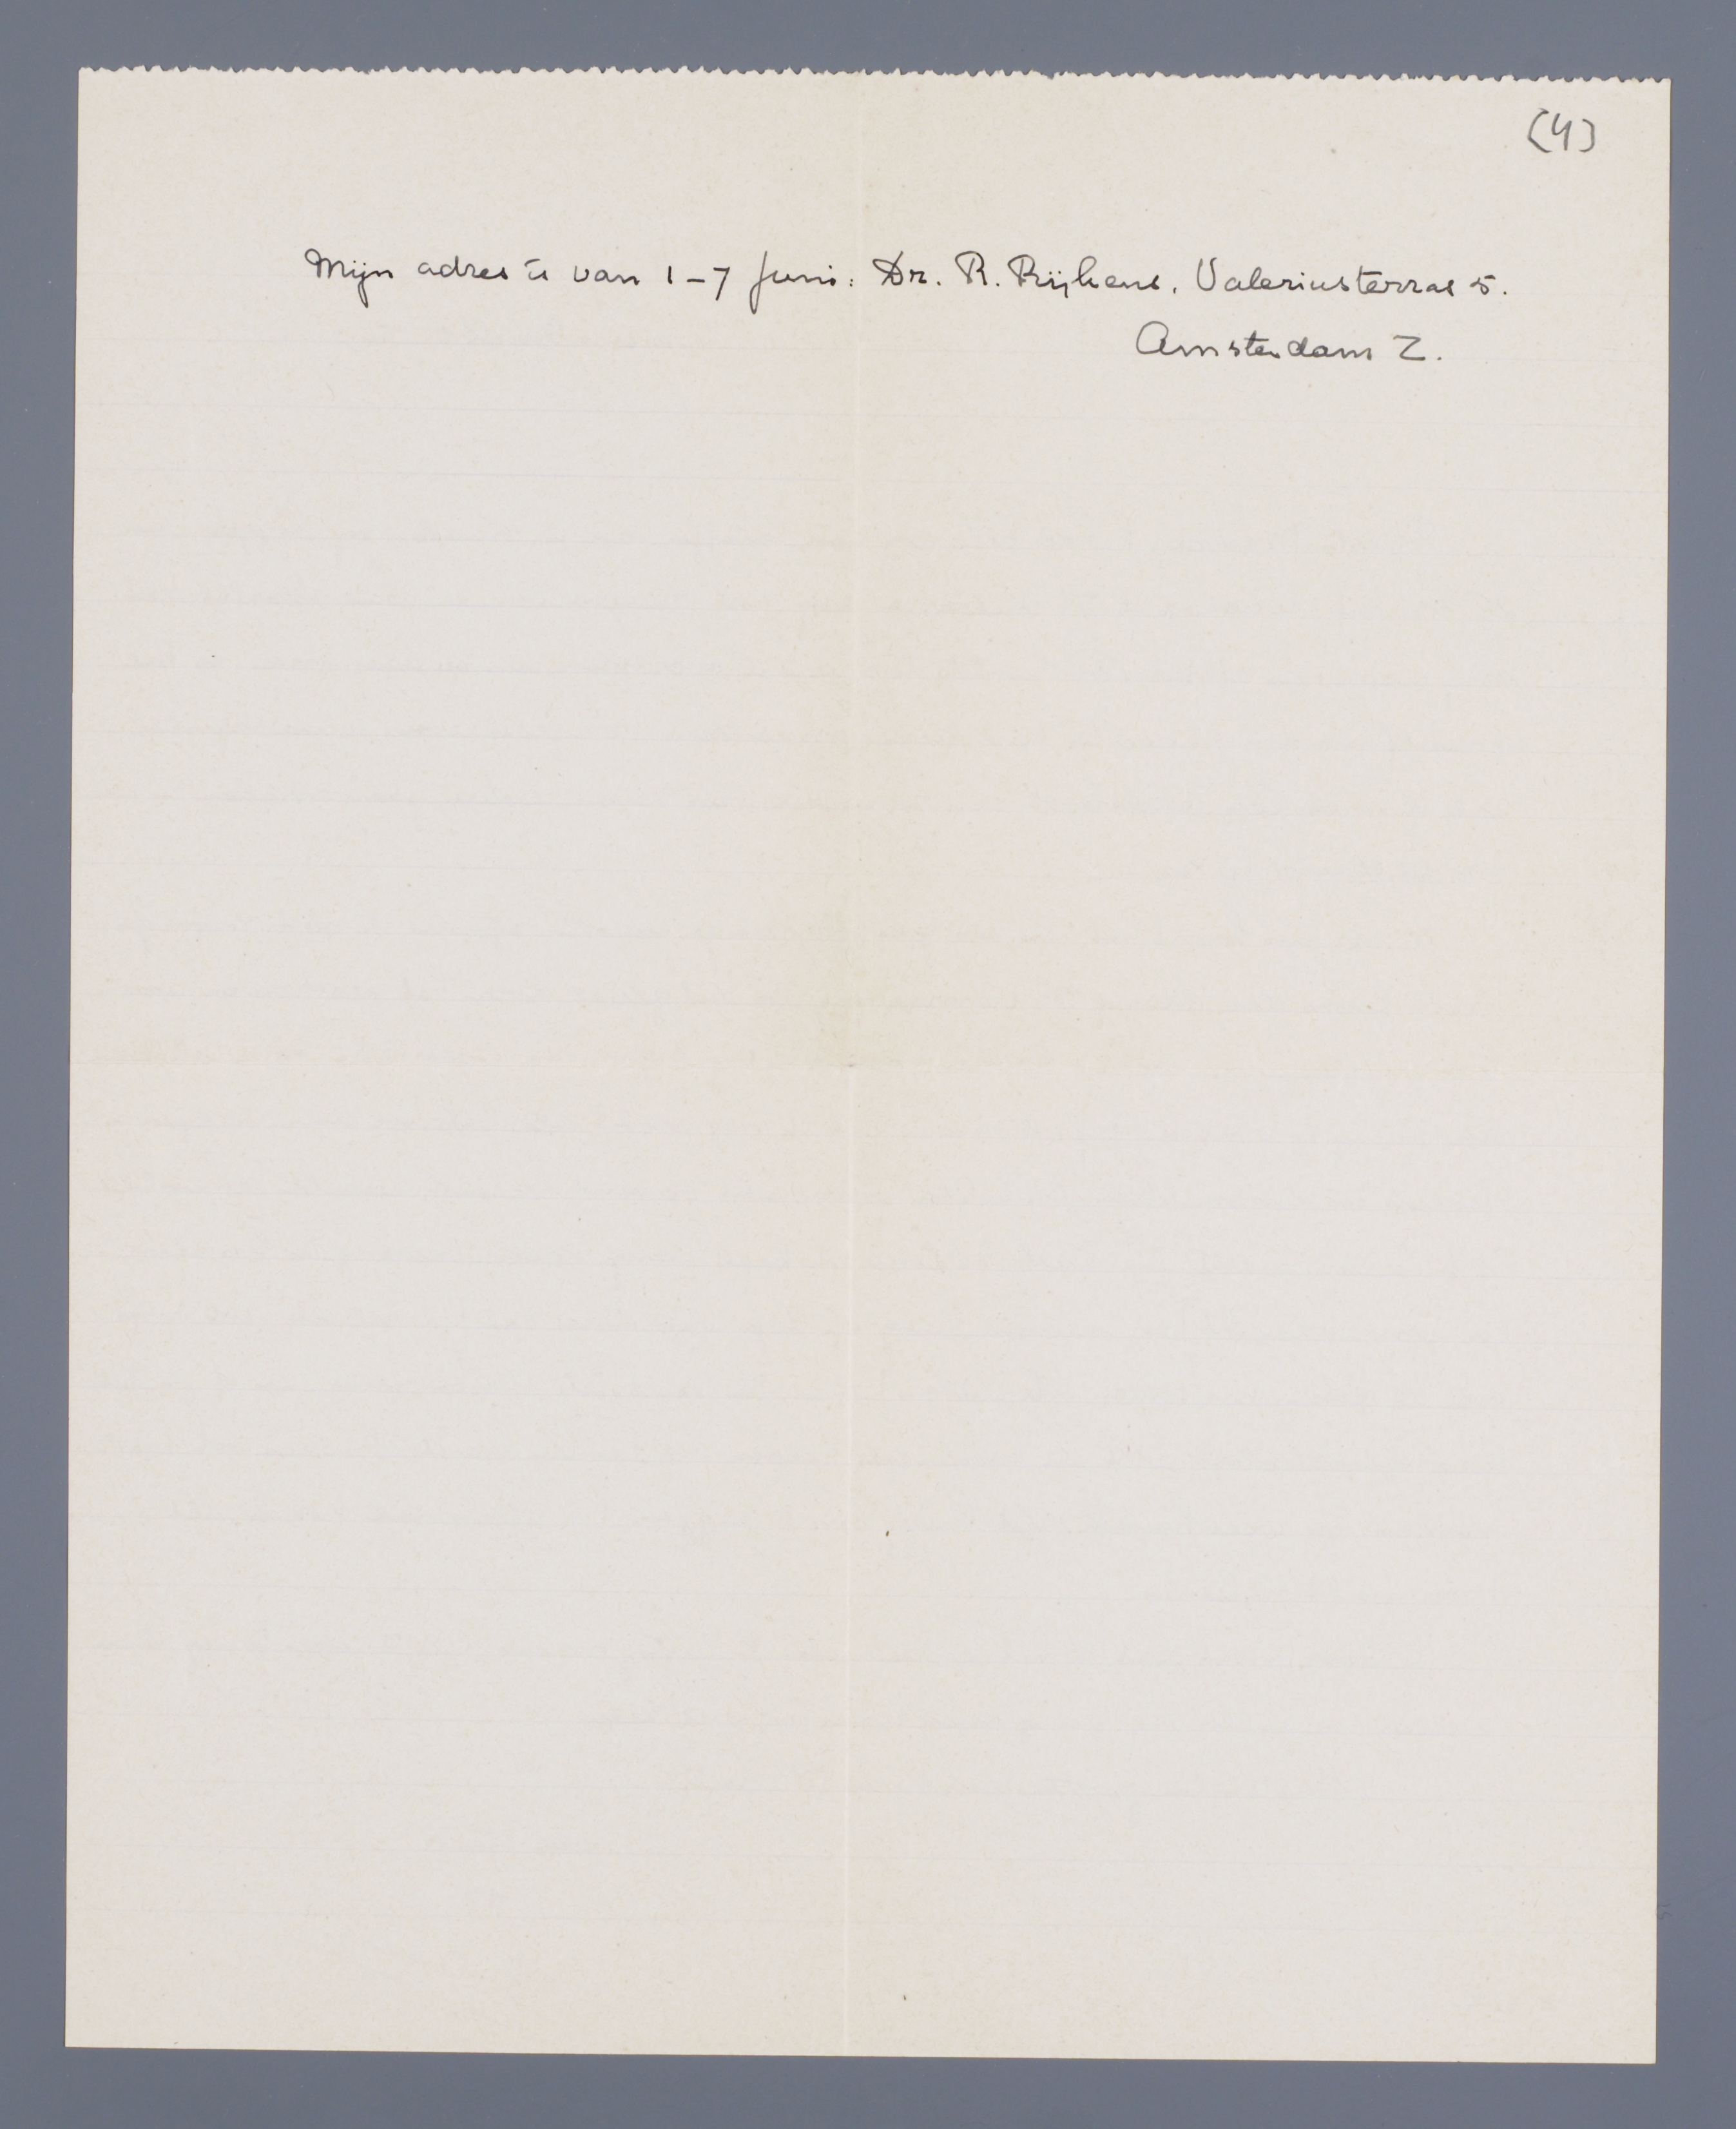 (4)
Mijn adres is van 1-7 Juni: Dr. R. Rijkens, Valeriusterras 5.
Amsterdam Z.